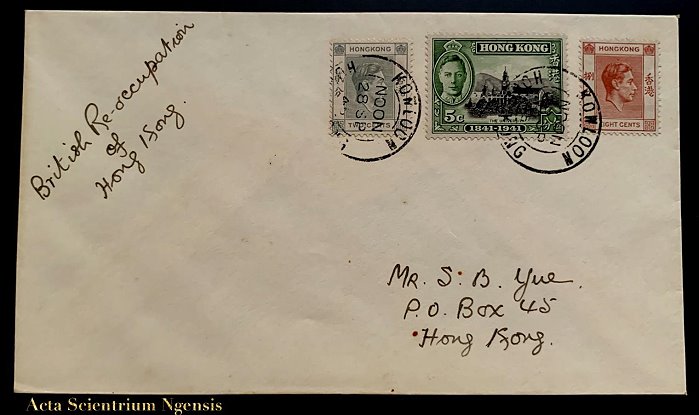 British Re-occupation
of
Hong Kong.
HONGKONG
TWO CENTS
KOWLOON
NOON
28 SP
HONG KONG
5c
1841-1941
KOWLOON
HONGKONG
香港
EIGHT CENTS
Mr. S. B. Yue.
P.O. Box 45
Hong Kong.
Acta Scientrium Ngensis